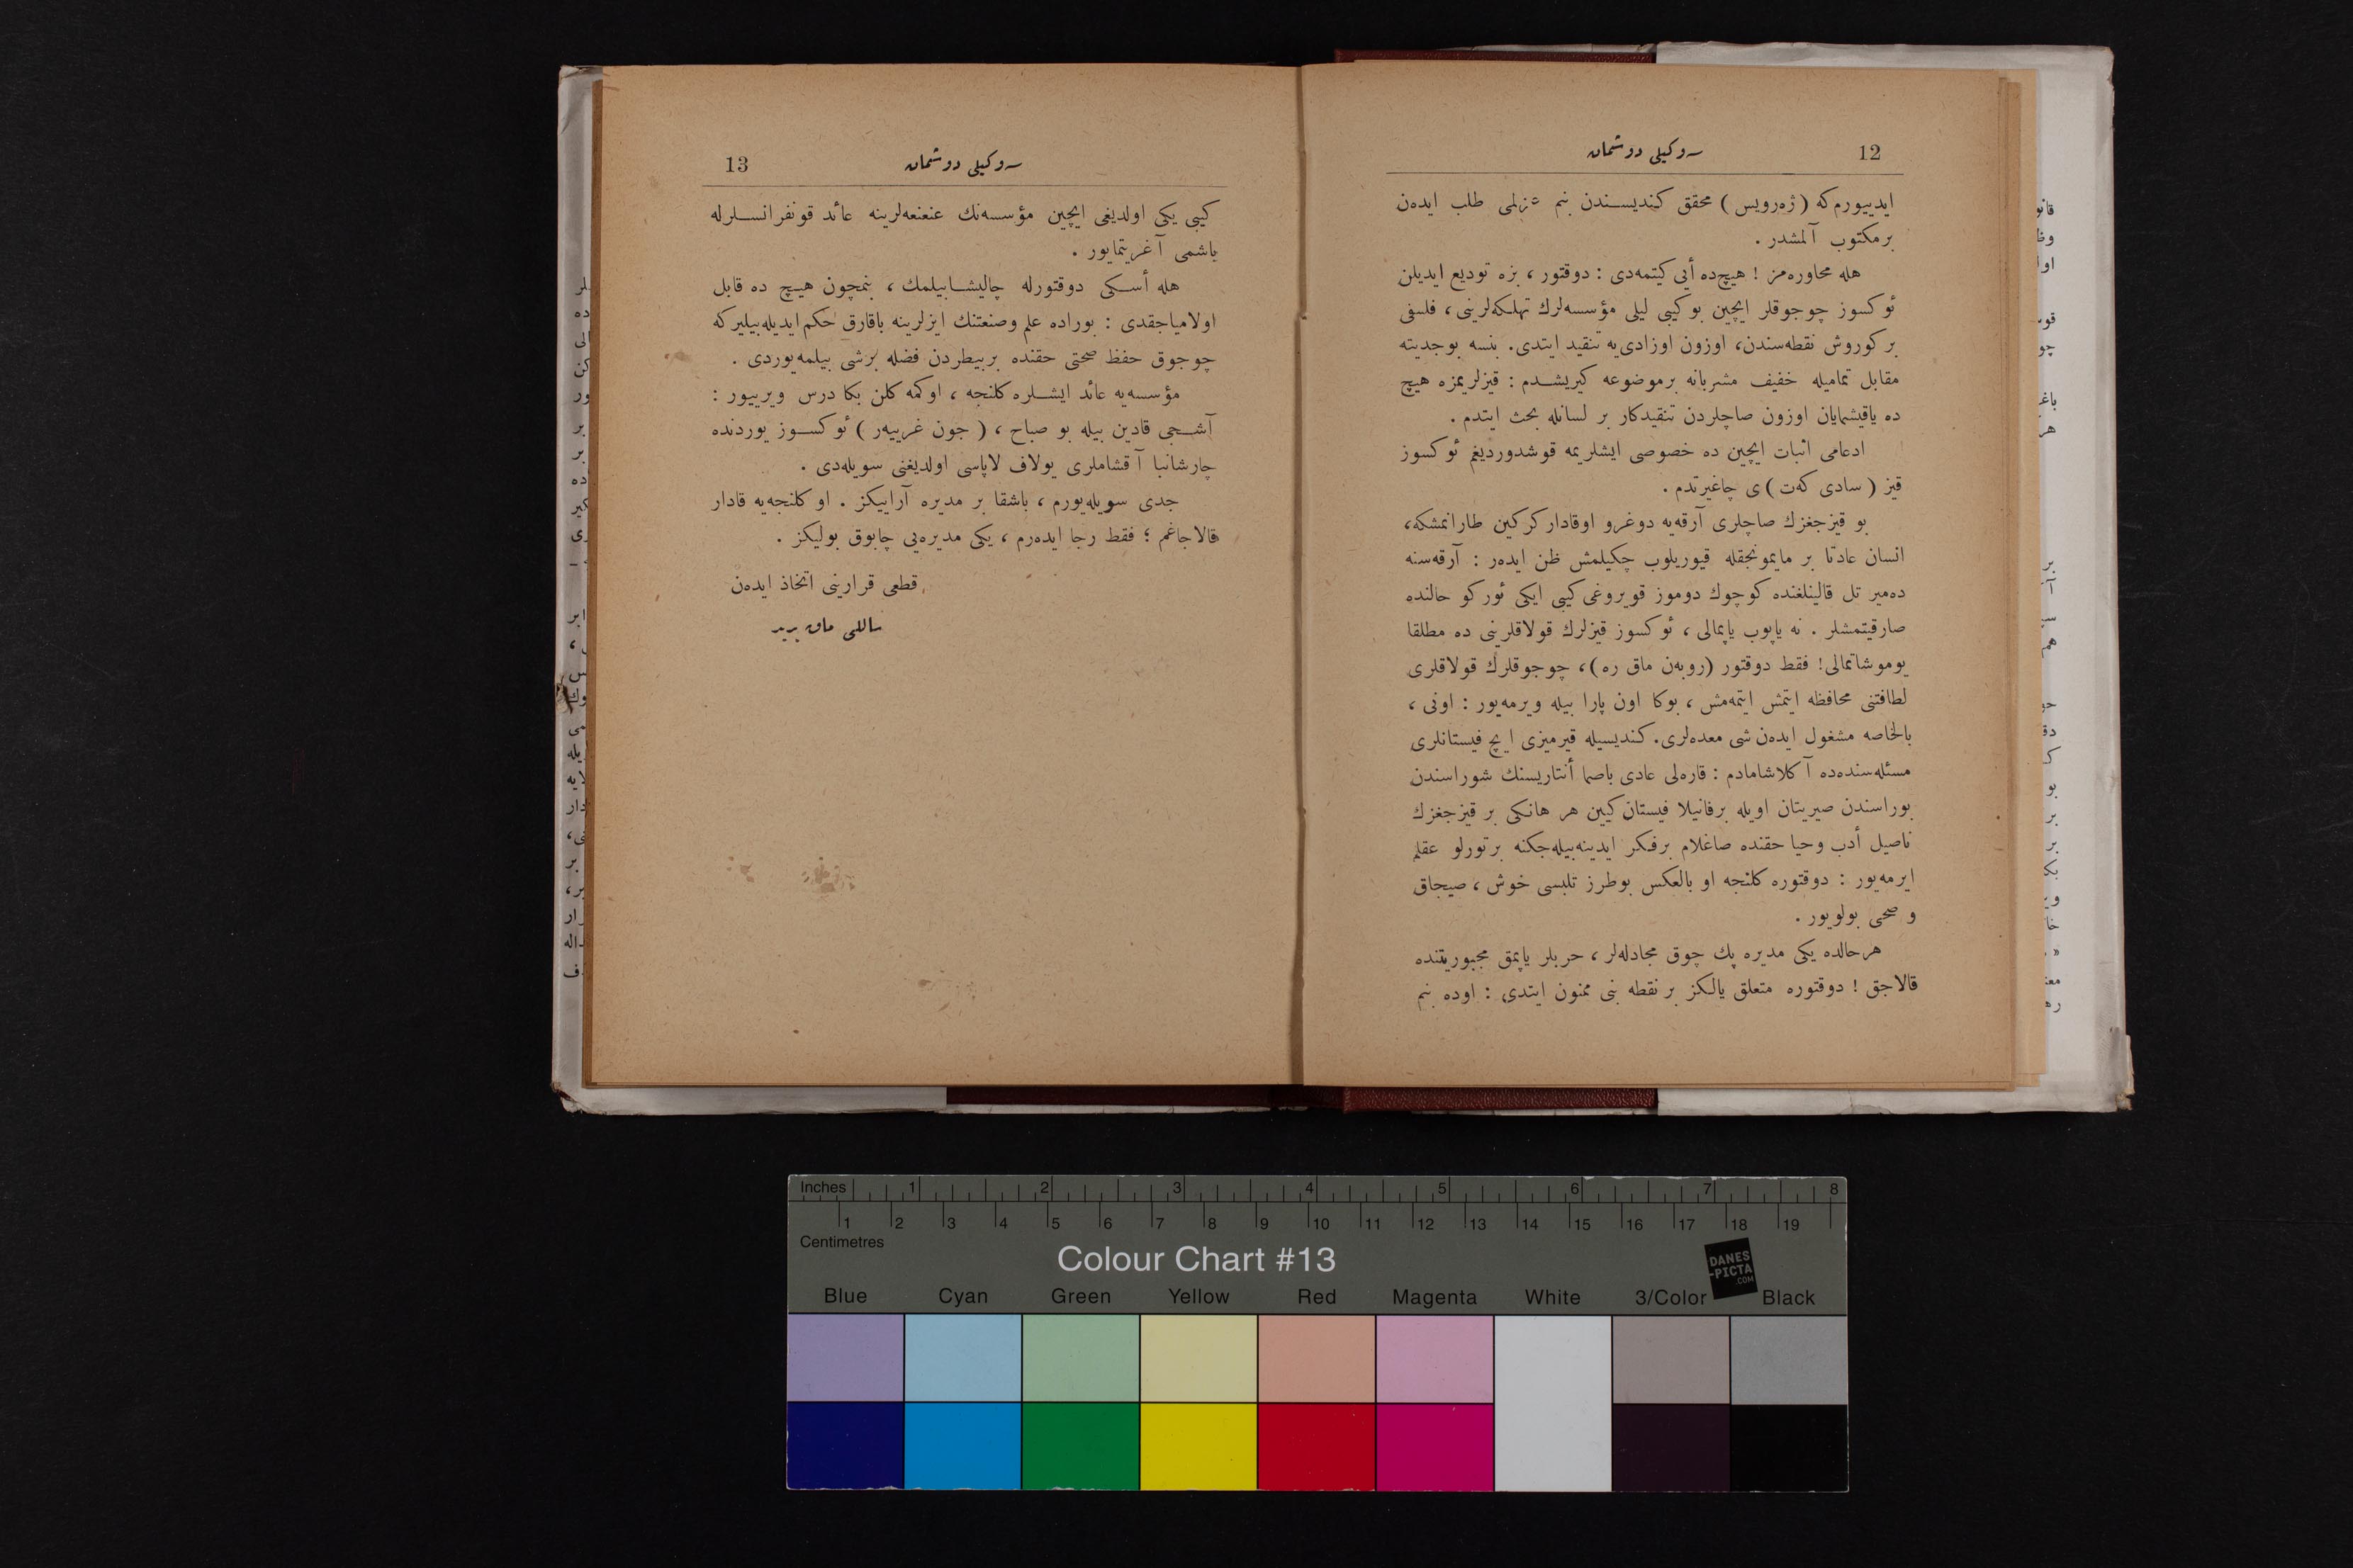 12
سوكيلی دوشمان
ايدييورم‌كه (ژه‌رويس) محقق كنديســندن بنم عزلمی طلب ايده‌ن
برمكتوب آلمشدر .
هله محاوره‌مز ! هيچ‌ده أیی كيتمه‌دی : دوقتور ، بزه توديع ايديلن
ئوكسوز چوجوقلر ايچين بوكيبی ليلی مؤسسه‌لرك تهلكه‌لرينی ، فلسفی
بر كوروش نقطه‌سندن، اوزون اوزادی‌يه تنقيد ايتدی. بنسه بوجديته
مقابل تماميله خفيف مشربانه برموضوعه كيريشــدم : قيزلريمزه هيچ
ده ياقيشمايان اوزون صاچلردن تنقيدكار بر لسانله بحث ايتدم .
ادعامی اثبات ايچين ده خصوصی ايشلريمه قوشدورديغم ئوكسوز
قيز (سادی كه‌ت)ی چاغيرتدم .
بو قيزجغزك صاچلری آرقه‌يه دوغرو اوقادار كركين طارانمشكه،
انسان عادتا بر مايمونجقله قيوريلوب چكيلمش ظن ايده‌ر : آرقه‌سنه
ده‌مير تل قالينلغنده كوچوك دوموز قويروغی كيبی ايكی ئوركو حالنده
صارقيتمشلر . نه ياپوب ياپمالی ، ئوكسوز قيزلرك قولاقلرينی ده مطلقا
يوموشاتمالی! فقط دوقتور (روبه‌ن ماق ره)، چوجوقلرك قولاقلری
لطافتنی محافظه ايتمش ايتمه‌مش ، بوكا اون پارا بيله ويرمه‌يور : اونی ،
بالخاصه مشغول ايده‌ن شی معده‌لری. كنديسيله قيرميزی ايچ فيستانلری
مسئله‌سنده‌ده آكلاشامادم : قاره‌لی عادی باصما أنتاريسنك شوراسندن
بوراسندن صيريتان اويله برفانيلا فيستان كيين هر هانكی بر قيزجغزك
ناصيل أدب وحيا حقنده صاغلام برفكر ايدينه‌بيله‌جكنه برتورلو عقلم
ايرمه‌يور : دوقتوره كلنجه او بالعكس بوطرز تلبسی خوش ، صيجاق
و صحی بولويور .
هرحالده يكی مديره پك چوق مجادله‌لر ، حربلر ياپمق مجبوريتنده
قالاجق ! دوقتوره متعلق يالكز بر نقطه بنی ممنون ايتدی : اوده بنم
13
سوكيلی دوشمان
كيبی يكی اولديغی ايچين مؤسسه‌نك عنعنه‌لرينه عائد قونفرانســلرله
باشمی آغريتمايور .
هله أســكی دوقتورله چاليشــابيلمك ، بنمچون هيچ ده قابل
اولامياجقدی : بوراده علم وصنعتنك ايزلرينه باقارق حكم ايديله‌بيليركه
چوجوق حفظ صحتی حقنده بربيطردن فضله برشی بيلمه‌يوردی .
مؤسسه‌يه عائد ايشــلره كلنجه ، اوكمه كلن بكا درس ويرييور :
آشــجی قادين بيله بو صباح ، (جون غريیه‌ر) ئوكســوز يوردنده
چارشانبا آقشاملری يولاف لاپاسی اولديغنی سويله‌دی .
جدی سويله‌يورم ، باشقا بر مديره آراييكز . او كلنجه‌يه قادار
قالاجاغم ؛ فقط رجا ايده‌رم ، يكی مديره‌یی چابوق بوليكز .
قطعی قرارينی اتخاذ ايده‌ن
ساللی ماق برید
Inches 1 2 3 4 5 6 7 8
1 2 3 4 5 6 7 8 9 10 11 12 13 14 15 16 17 18 19
Centimetres
Colour Chart #13
DANES
-PICTA
.COM
Blue Cyan Green Yellow Red Magenta White 3/Color Black